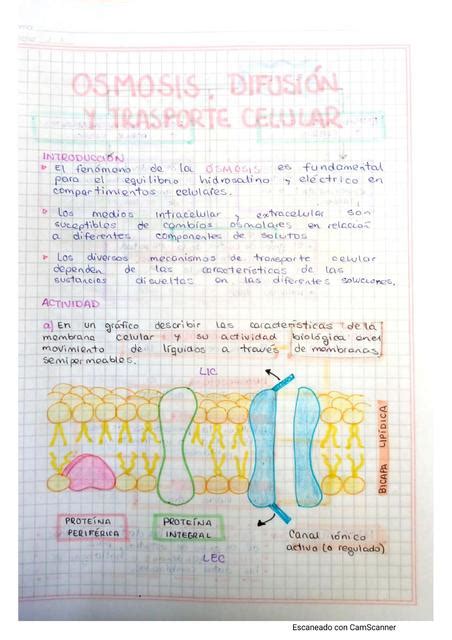 OSMOSIS, DIFUSIÓN
Y TRASPORTE CELULAR
INTRODUCCIÓN
El fenómeno de la OSMOSIS es fundamental
para el equilibrio hidrosalino y eléctrico en
compartimientos celulares.
Los medios intracelular y extracelular son
suceptibles de cambios osmolares en relación
a diferentes componentes de solutos
Los diversos mecanismos de transporte celular
dependen de las características de las
sustancias disueltas en las diferentes soluciones.
ACTIVIDAD
a) En un gráfico describir las características de la
membrana celular y su actividad biológica en el
movimiento de líquidos a través de membranas
semipermeables.
LIC
BICAPA LIPÍDICA
PROTEÍNA
PERIFÉRICA
PROTEÍNA
INTEGRAL
Canal iónico
activo (o regulado)
LEC
Escaneado con CamScanner